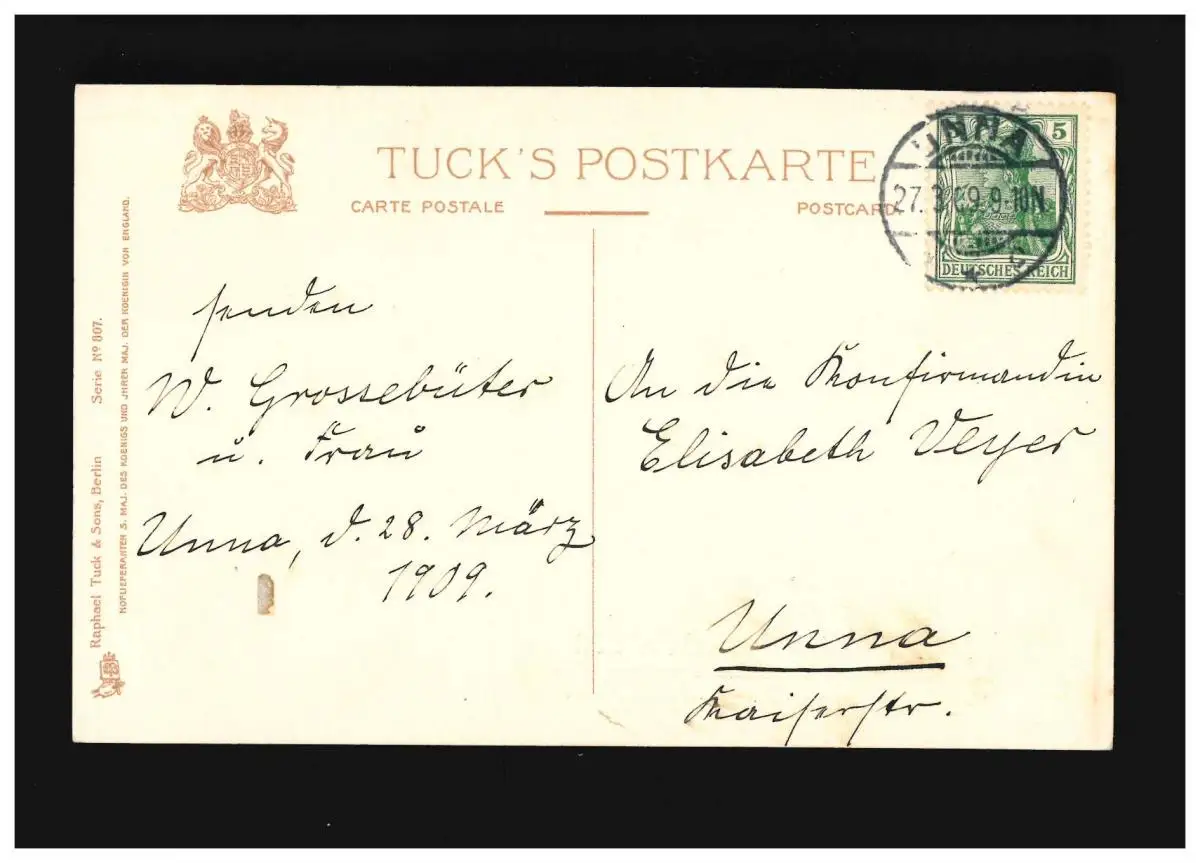 TUCK'S POSTKARTE
CARTE POSTALE
POSTCARD
UNNA
27.3.09.9-10N.
5
DEUTSCHES REICH
senden
W. Grossebüter
u. Frau
Unna, d. 28. März
1909.
An die Konfirmandin
Elisabeth Veyer
Unna
Kaiserstr.
Raphael Tuck & Sons, Berlin Serie No 807.
HOFLIEFERANTEN S. MAJ. DES KOENIGS UND JHRER MAJ. DER KOENIGIN VON ENGLAND.